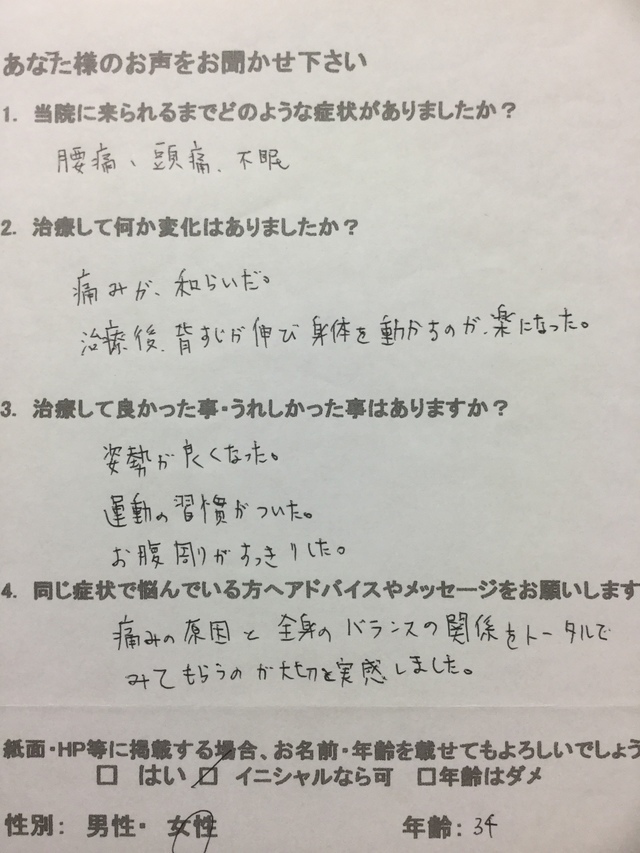 あなた様のお声をお聞かせ下さい
1. 当院に来られるまでどのような症状がありましたか？
腰痛、頭痛、不眠
2. 治療して何か変化はありましたか？
痛みが、和らいだ。
治療後、背すじが伸び身体を動かすのが、楽になった。
3. 治療して良かった事・うれしかった事はありますか？
姿勢が良くなった。
運動の習慣がついた。
お腹周りがすっきりした。
4. 同じ症状で悩んでいる方へアドバイスやメッセージをお願いします
痛みの原因と全身のバランスの関係をトータルで
みてもらうのが大切と実感しました。
紙面・HP等に掲載する場合、お名前・年齢を載せてもよろしいでしょう
□ はい ☑ イニシャルなら可 □年齢はダメ
性別： 男性・ 女性 年齢：34